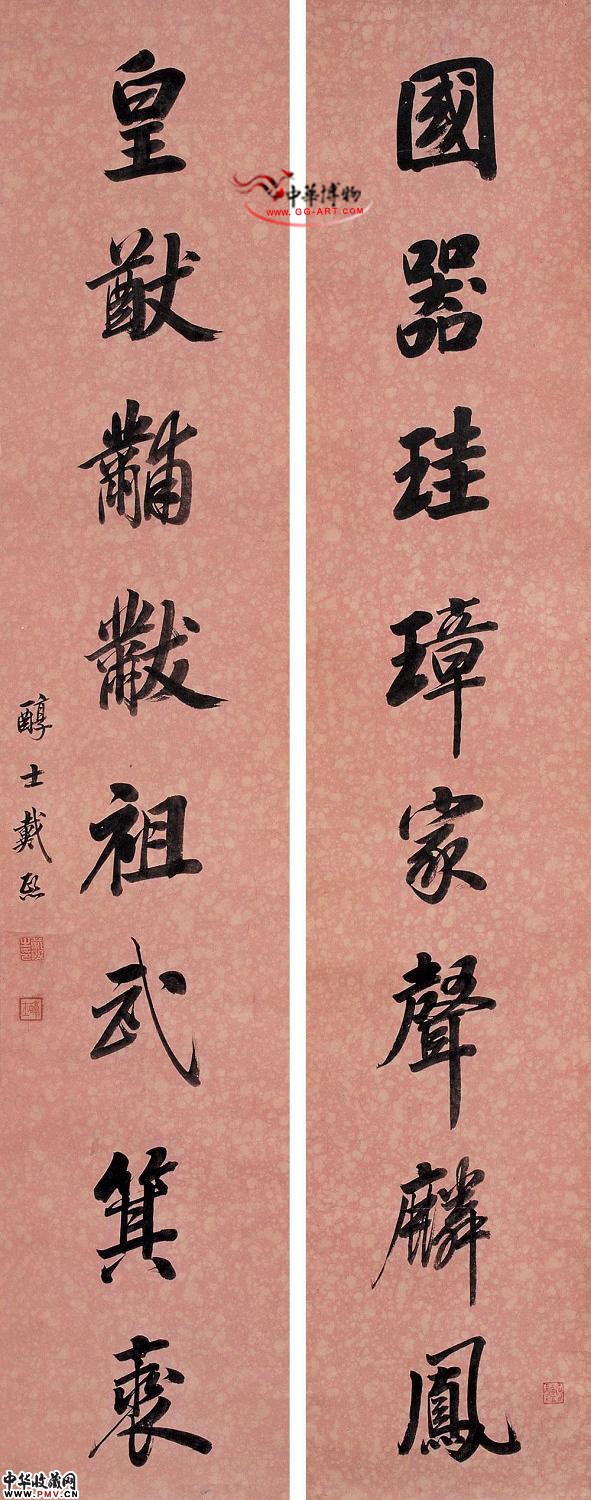 國器珪璋家聲麟鳳
皇猷黼黻祖武箕裘
醇士戴熙
中華博物
www.GG-ART.COM
中华收藏网
WWW.PMV.CN